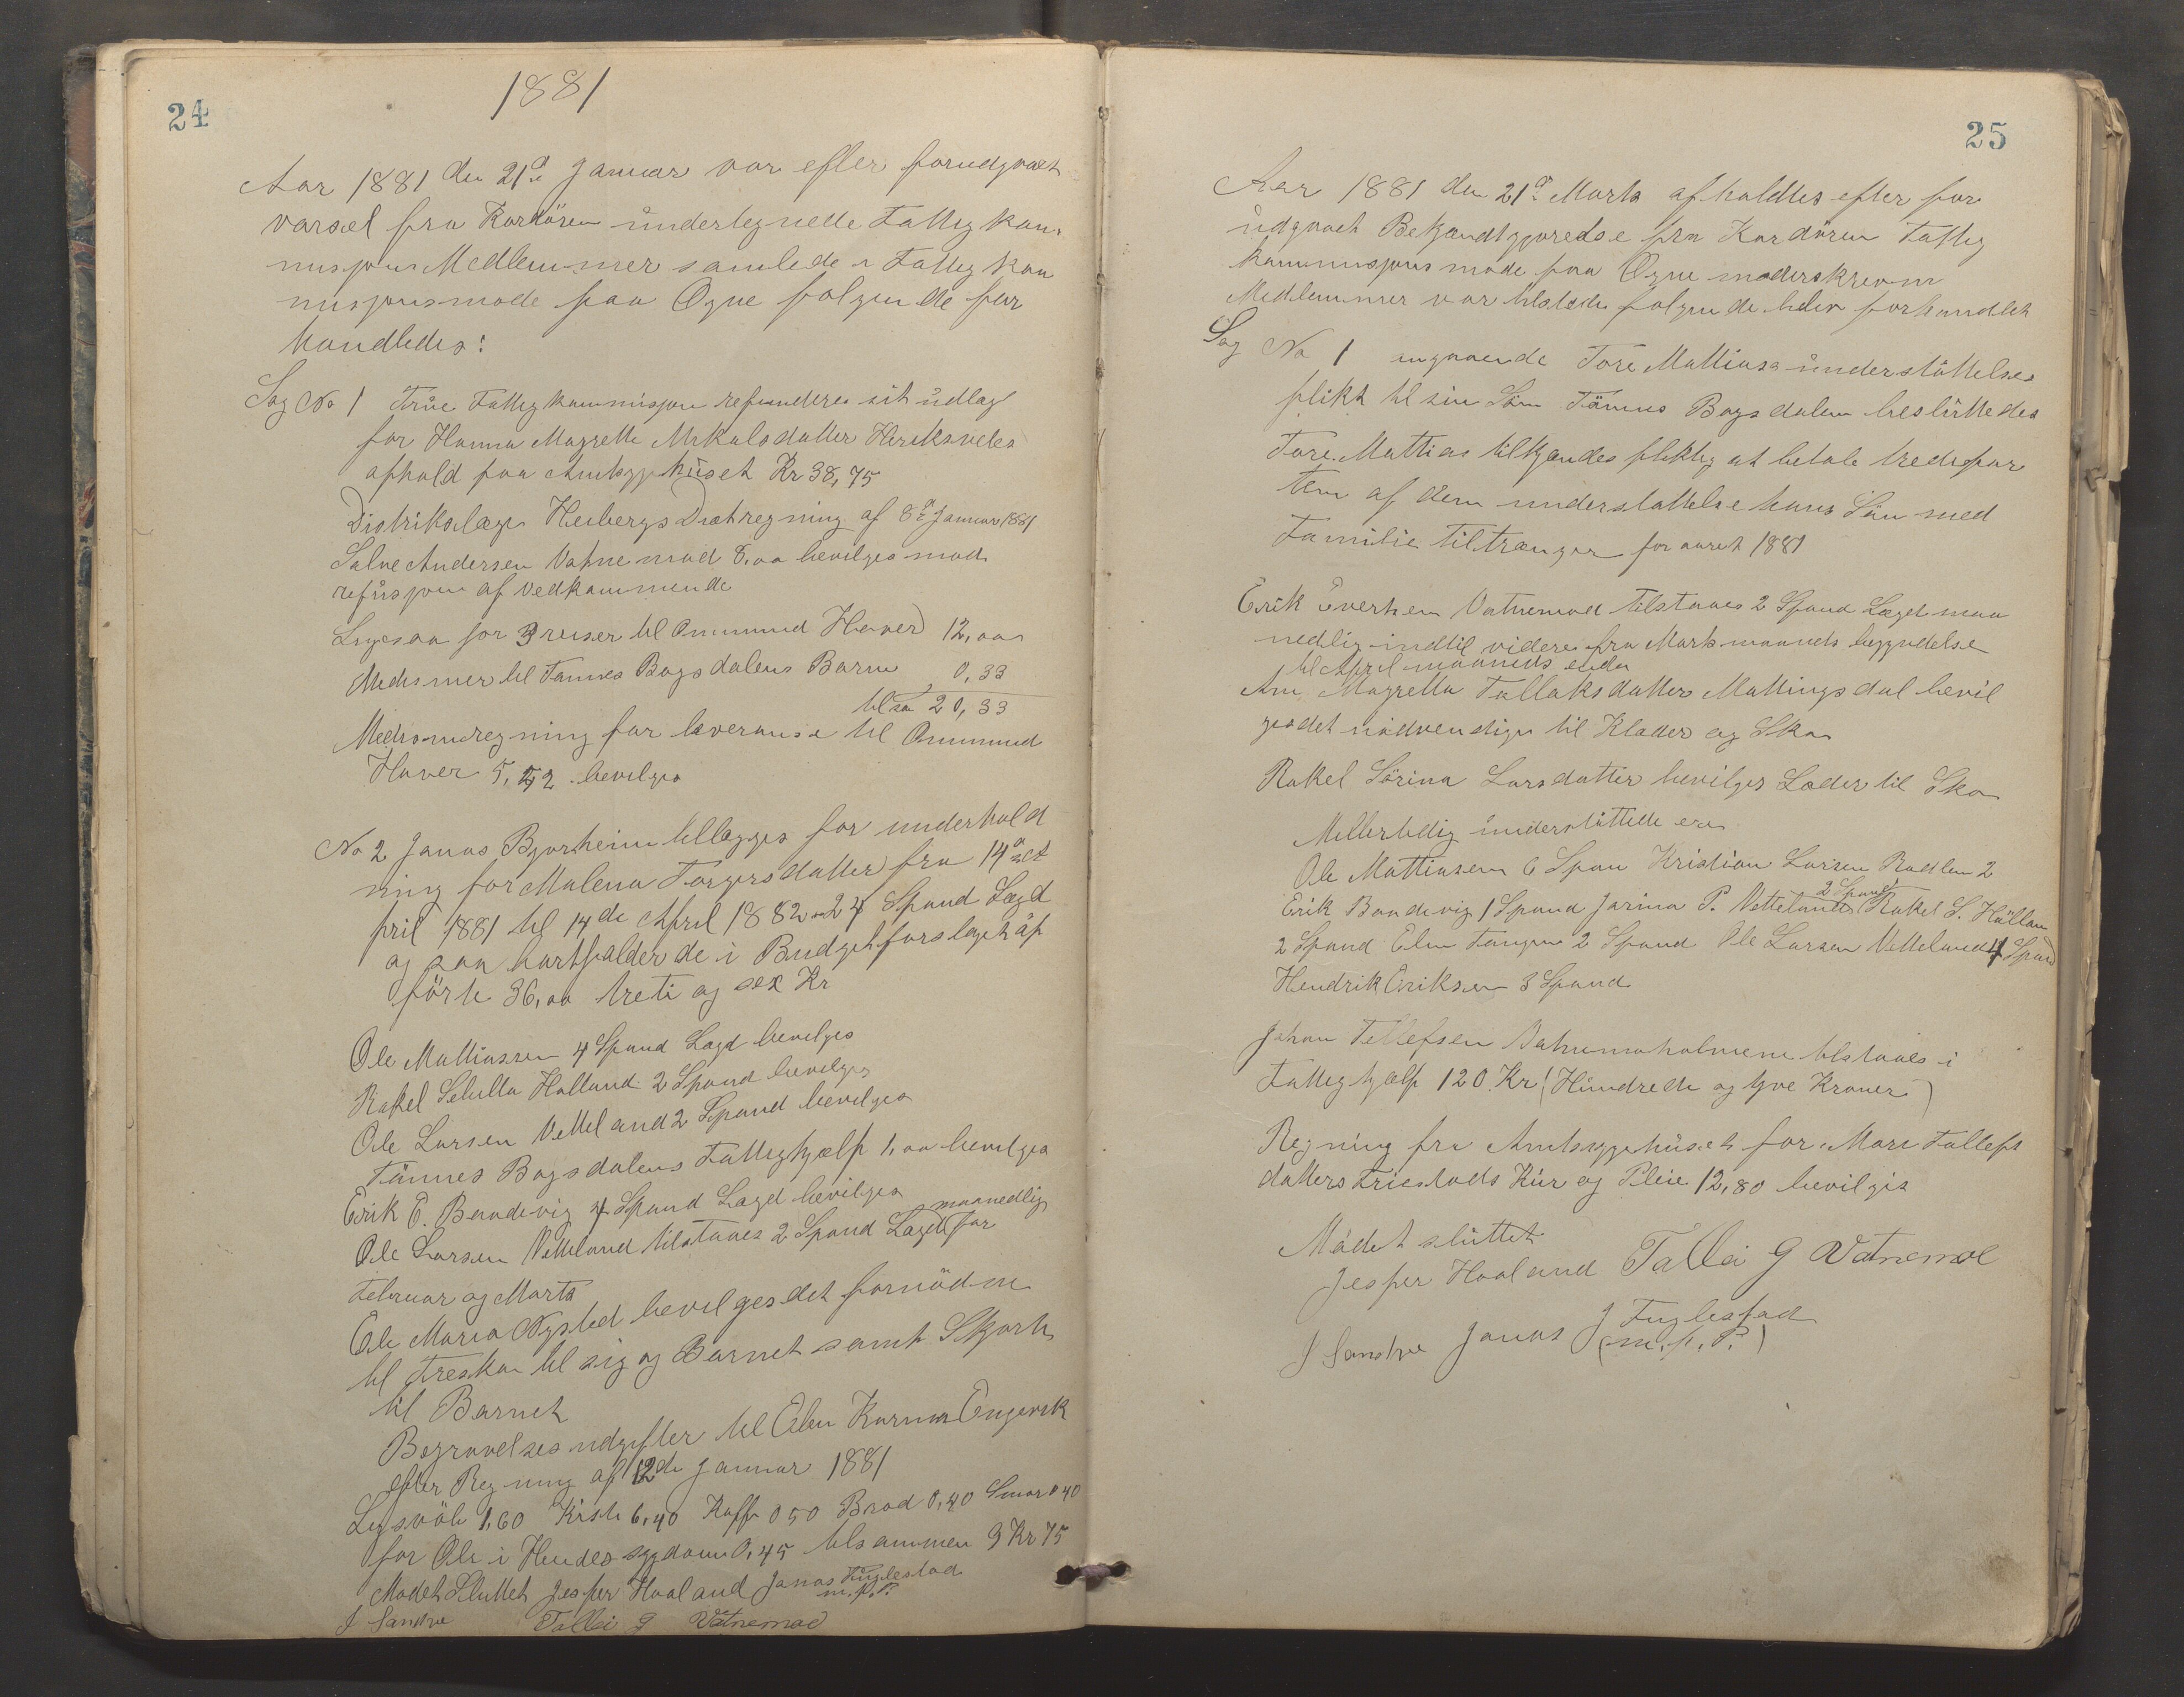 24
1881
Aar 1881 den 21de Januar var efter forudgaaet
varsel fra Kordören ündertegnede Fattigkom
misjons Medlemmer samlede i Fattigkom
misjonsmøde paa Ogne følgende for
handledes:
Sag No 1 Trüe Fattigkommisjon refunderes sit üdlæg
for Hanna Magrette Mikalsdatter Heriksveles
ophold paa Amtssygehüset Kr 38,75
Distrikslæge Heibergs Diætregning af 8de Januar 1881
Salve Andersen Vatnemod 8,00 bevilges mod
refüsjon af vedkommende
Ligesaa for 3 reiser til Ommund Haver 12,00
Medisiner til Tønnes Bogsdalens Barn 0,33
tilsa 20,33
Medisinregning for leveranse til Ommund
Haver 5,52 bevilges
No 2 Janas Bjorheim tillægges for underhold
ning for Malena Torgersdatter fra 14de A
pril 1881 til 14de April 1882 24 Spand Lægd
og saa bortfalder de i Budgetforslaget op
förte 36,00 treti og sex Kr
Ole Mattiassen 4 Spand Lægd bevilges
Rakel Selulla Holland 2 Spand bevilges
Ole Larsen Vetteland 2 Spand bevilges
Tönnes Bogsdalens Fattighjælp 1,00 bevilges
Erik E. Bandevig 4 Spand Lægd bevilges
maanedlig
Ole Larsen Vetteland tilstaaes 2 Spand Lægd for
Februar og Marts
Ele Maria Nysted bevilges det fornödne
til Treskor til sig og Barnet samt Skjorte
til Barnet
Begravelsesudgifter til Elen Karina Engevik
efter Regning af 12de Januar 1881
Ligsvöb 1,60 Kiste 6,40 Kaffe 0 50 Brød 0,40 Smør 0 40
for Ole i Hendes sygdom 0,45 tilsammen 9 Kr 75
Mødet Sluttet Jesper Haaland Janas Füglestad
m.p.P.
J Sandve Tallei G Vatnemod
25
Aar 1881 den 21de Marts afholdtes efter for
üdgaaet Bekjendtgjørelse fra Kordören Fattig
kommisjonsmøde paa Ogne
Medlemmer var tilstede følgende blev forhandlet
Sag No 1 angaaende Tore Mattiass ünderstöttelses
plikt til sin Søn Tönnes Bogsdalen beslüttedes
Tore Mattias tilkjendes pliktig at betale tredepar
ten af den understøttelse hans Søn med
Familie tiltrænger for aaret 1881
Erik Everhen Vatnemod tilstaaes 2 Spand Lægd maa
nedlig indtil videre fra Marts maaneds begyndelse
til April maaneds ende
Ane Magretta Tallaksdatter Mattingsdal bevil
ges det nødvendige til Klæder og Sko
Rakel Sörina Larsdatter bevilges Læder til Sko
Midlertidig ünderstüttede ere
Ole Mattiasen 6 Span Kristian Larsen Rodlen 2
2 Spand
Erik Bandevig 1 Spand Jarina P. Vetteland Rakel S. Hålland
2 Spand Elen Tangen 2 Spand Ole Larsen Vetteland 4 Spand
Hendrik Eriksen 3 Spand
Johan Tellefsen Vatnemoholmene tilstaaes i
Fattighjælp 120 Kr (Hündrede og tyve Kroner)
Regning fra Amtssygehüset for Mari Tallefs
datters Kür og Pleie 12,80 bevilges
Mödet slüttet
Jesper Haaland Tallei G Vatnemod
J Sandve Janas J Fuglestad
(m.p.P.)